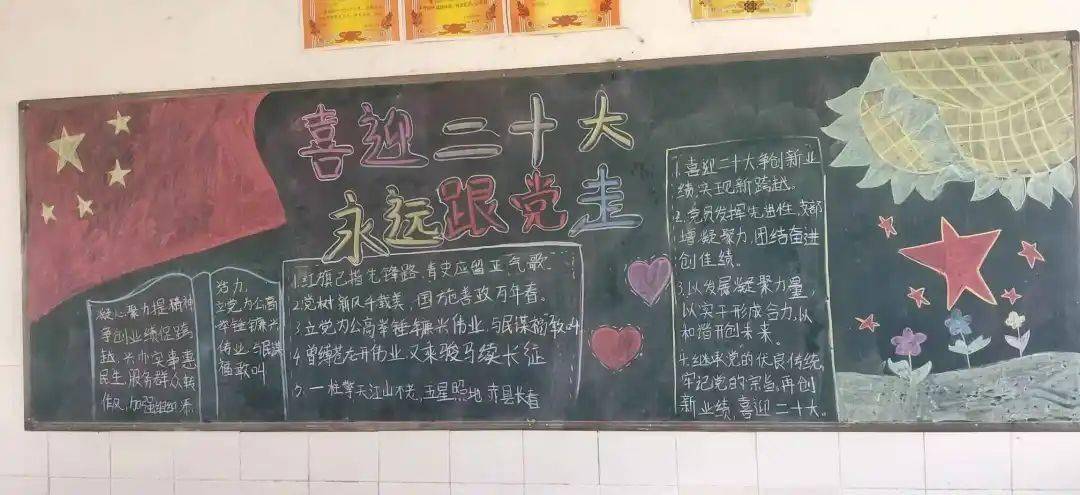 喜迎二十大
永远跟党走
凝心聚力提精神
争创业绩促跨
越,兴办实事惠
民生,服务群众转
作风,加强组织添
活力,
立党为公高
举锤镰兴
伟业,与民谋
福敢叫
1.红旗已指先锋路,青史应留正气歌。
2.党树新风千载美,国施善政万年春。
3.立党为公高举锤镰兴伟业,与民谋福敢叫
4.曾缚苍龙开伟业又乘骏马续长征
5.一柱擎天江山不老,五星照地赤县长春
1.喜迎二十大争创新业
绩,实现新跨越。
2.党员发挥先进性,支部
增凝聚力,团结奋进
创佳绩。
3.以发展凝聚力量,
以实干形成合力,以
和谐开创未来.
4.继承党的优良传统,
牢记党的宗旨,再创
新业绩,喜迎二十大。